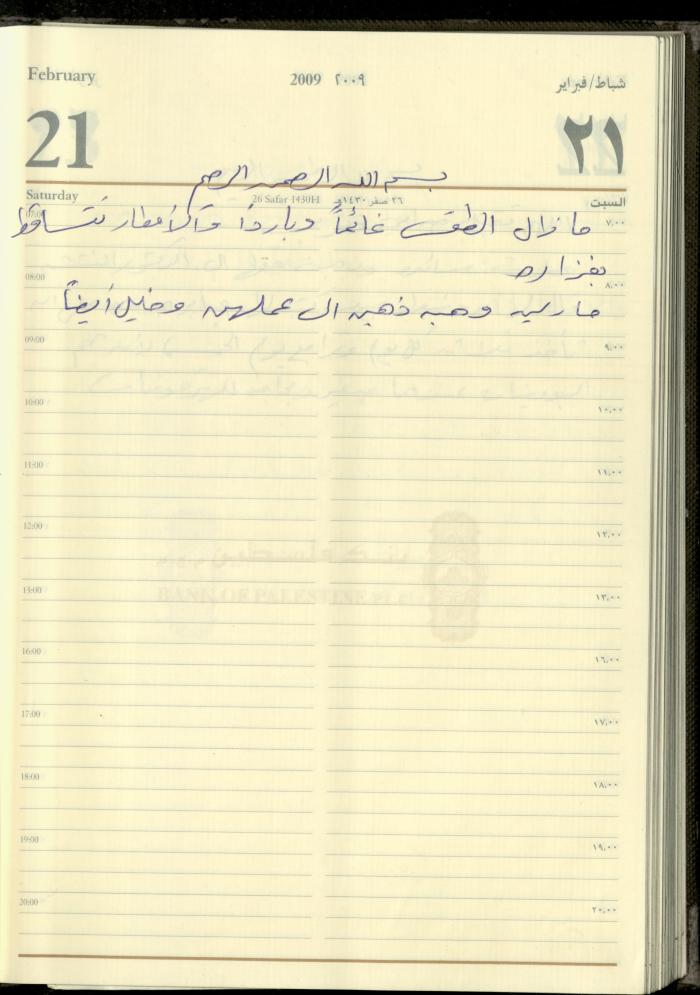 February 2009 ٢٠٠٩ شباط/فبراير
21 ٢١
بسم الله الرحمن الرحيم
Saturday 26 Safar 1430H ٢٦ صفر ١٤٣٠هـ السبت
07:00 ٧,٠٠
ما زال الطقس غائماً وبارداً والأمطار تتساقط
بغزاره
08:00 ٨,٠٠
وهبه ذهبن الى عملهن وخليل أيضاً
09:00 ٩,٠٠
10:00 ١٠,٠٠
11:00 ١١,٠٠
12:00 ١٢,٠٠
13:00 ١٣,٠٠
BANK OF PALESTINE
16:00 ١٦,٠٠
17:00 ١٧,٠٠
18:00 ١٨,٠٠
19:00 ١٩,٠٠
20:00 ٢٠,٠٠